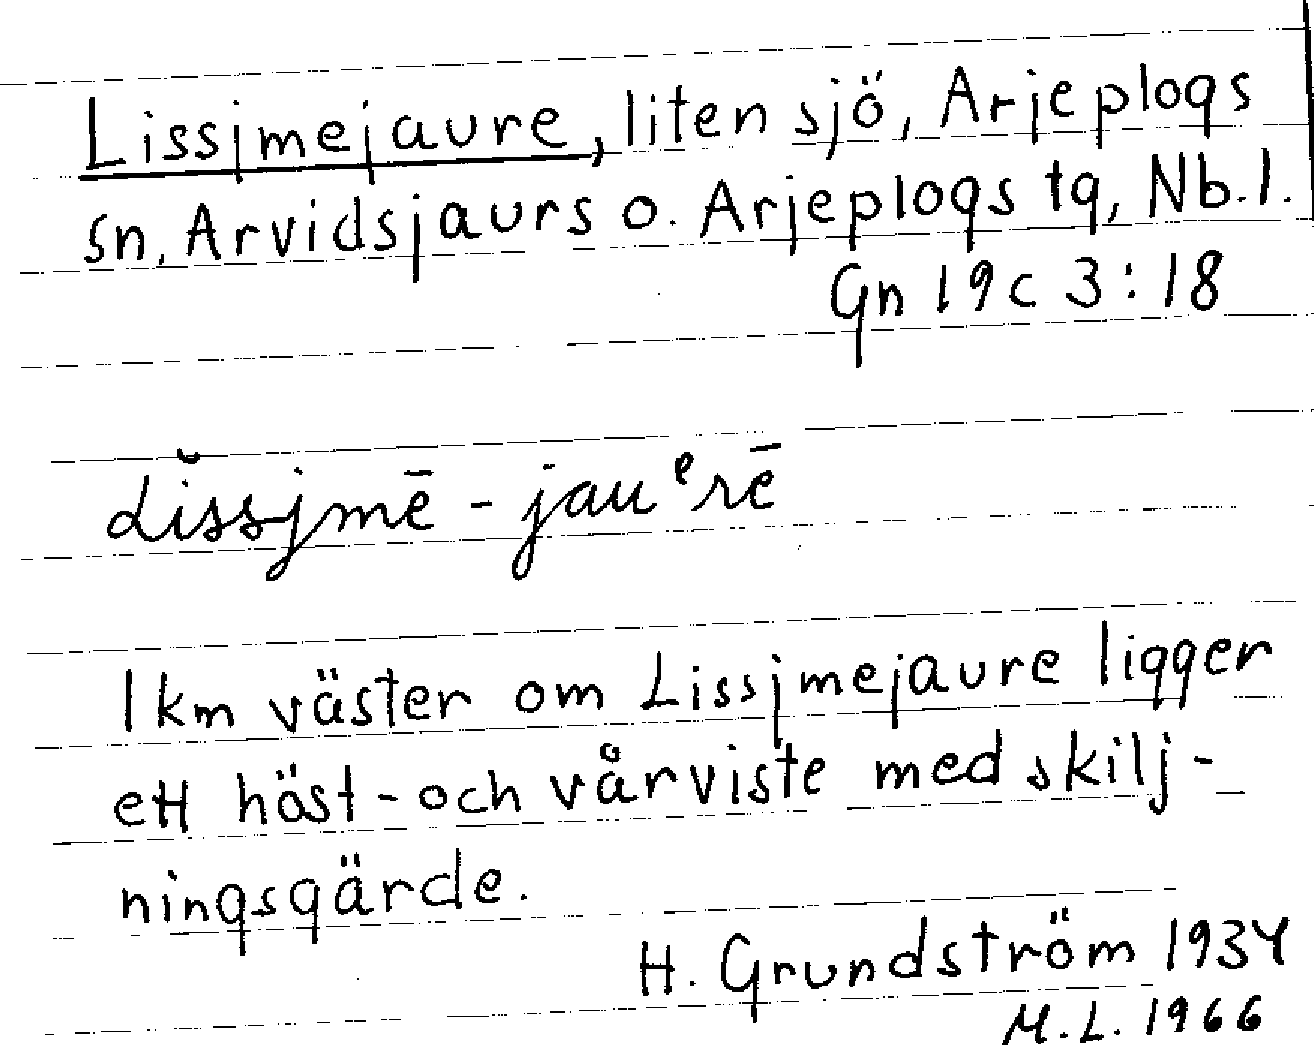 Lissjmejaure, liten sjö, Arjeplogs
sn, Arvidsjaurs o. Arjeplogs tg, Nb. l.
Gn 19c 3:18
Lĭssjmē - jauᵉrē
1 km väster om Lissjmejaure ligger
ett höst- och vårviste med skilj-
ningsgärde.
H. Grundström 1934
M.L. 1966